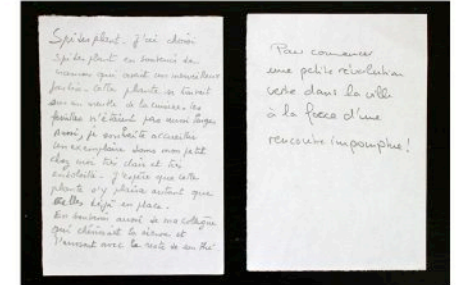 Spider plant - J'ai choisi
Spider plant en souvenir de
maman qui avait un merveilleux
jardin. Cette plante se trouvait
sur un meuble de la cuisine. Les
feuilles n'étaient pas aussi larges
Aussi, je souhaite accueillir
un exemplaire dans mon petit
chez moi très clair et très
ensoleillé. J'espère que cette
plante s'y plaira autant que
celles déjà en place.
En souvenir aussi de ma collègue
qui chérissait la sienne et
l'arrosait avec le reste de son thé
Pour commencer
une petite révolution
verte dans la ville
à la force d'une
rencontre impromptue !